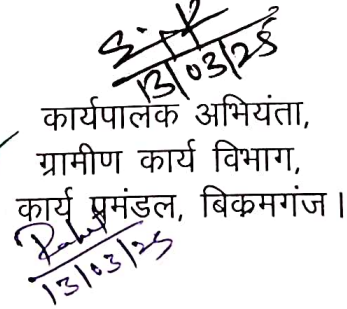 13/03/25
कार्यपालक अभियंता,
ग्रामीण कार्य विभाग,
कार्य प्रमंडल, बिक्रमगंज।
13/03/25